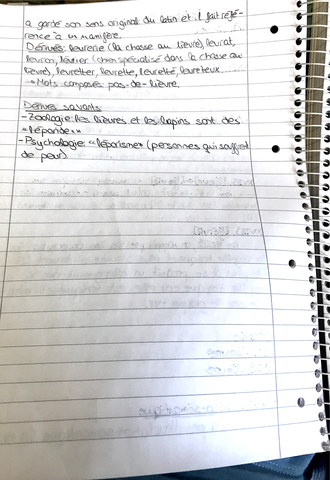 a gardé son sens original du latin et il fait réfé-
rence à un mamifère.
Dérivés: leurerie (la chasse au lièvre), levrat,
levron, lévrier (chien spécialisé dans la chasse au
lièvre), levretter, levrette, levretté, levreteux...
→ Mots composés: pas-de-lièvre.
Dérivés savants:
-Zoologie: les lièvres et les lapins sont des
«léporidés»
-Psychologie: «léporisme» (personnes qui souffrent
de peur)